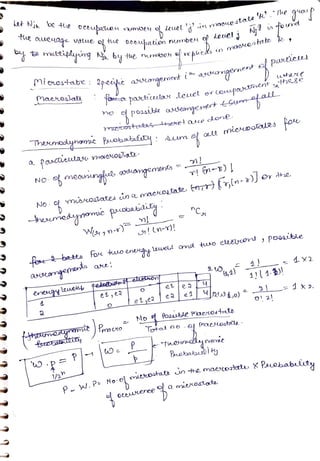 Let Njk be the occupation number of level 'j' in macrostate 'k'. The group
the average value of the occupation number of level j is found
by multiplying Njk by the number of replicas in macrostate k,
Microstate : Specific arrangement
Macrostate particular level or compartment where
no of possible arrangement
microstates are done
Thermodynamic Probability : sum of all microstates for
a particular macrostate.
No. of meaningful arrangements = n! / r! (n-r)!
No. of microstates in a macrostate (n,r) [r,(n-r)] or the
thermodynamic probability.
W(r, n-r) = n! / r! (n-r)! = nCr
For two energy levels and two electrons, possible
arrangements are:
energy levels
1 e1, e2 0 e1 e2 4
2 0 e1, e2 e2 e1 4
2! / 1! 1! = 1 x 2
2! / 0! 2! = 1 x 2
(Thermodynamic Probability) Pmacro = No of Possible Macrostate / Total no. of Macrostate.
W . P = P 1/2n
W = P / p → Thermodynamic Probability
P = W.P = No. of microstate in the macrostate X Probability
of occurence of a microstate